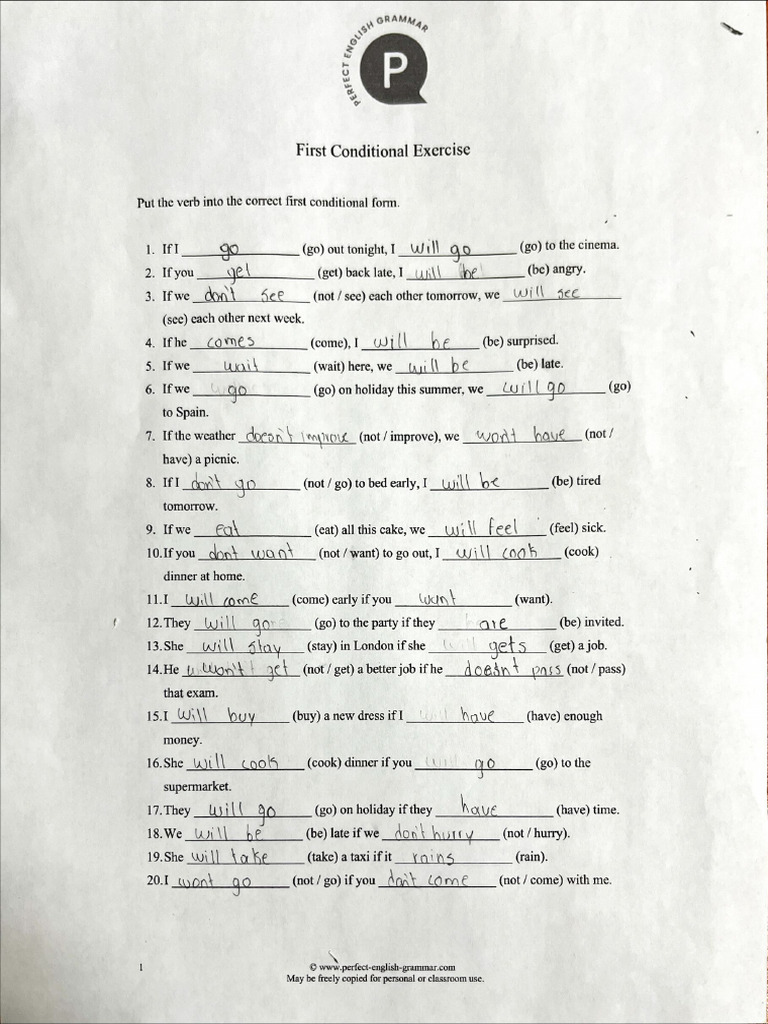 PERFECT ENGLISH GRAMMAR
P
First Conditional Exercise
Put the verb into the correct first conditional form.
1. If I go (go) out tonight, I will go (go) to the cinema.
2. If you get (get) back late, I will be (be) angry.
3. If we don't see (not / see) each other tomorrow, we will see
(see) each other next week.
4. If he comes (come), I will be (be) surprised.
5. If we wait (wait) here, we will be (be) late.
6. If we go (go) on holiday this summer, we will go (go)
to Spain.
7. If the weather doesn't improve (not / improve), we won't have (not /
have) a picnic.
8. If I don't go (not / go) to bed early, I will be (be) tired
tomorrow.
9. If we eat (eat) all this cake, we will feel (feel) sick.
10.If you dont want (not / want) to go out, I will cook (cook)
dinner at home.
11.I will come (come) early if you want (want).
12.They will go (go) to the party if they are (be) invited.
13.She will stay (stay) in London if she gets (get) a job.
14.He won't get (not / get) a better job if he doesn't pass (not / pass)
that exam.
15.I will buy (buy) a new dress if I have (have) enough
money.
16.She will cook (cook) dinner if you go (go) to the
supermarket.
17.They will go (go) on holiday if they have (have) time.
18.We will be (be) late if we don't hurry (not / hurry).
19.She will take (take) a taxi if it rains (rain).
20.I wont go (not / go) if you don't come (not / come) with me.
1
© www.perfect-english-grammar.com
May be freely copied for personal or classroom use.